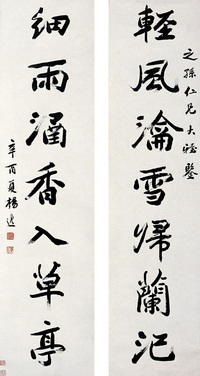 之孫仁兄大雅鑒
輕風瀹雪歸蘭汜
細雨涌香入草亭
辛酉夏楊逸